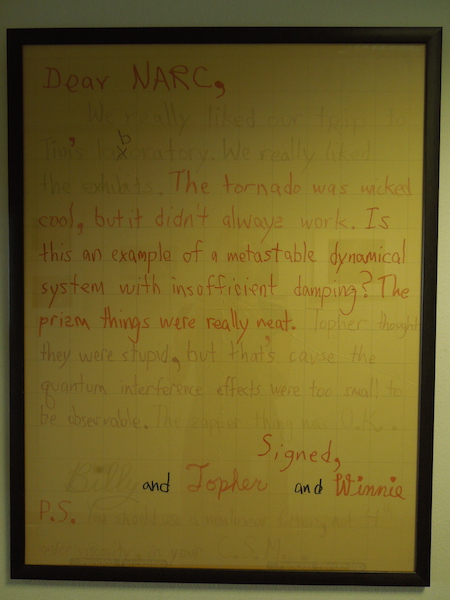 Dear NARC,
We really liked our trip to
Tim's laboratory. We really liked
the exhibits. The tornado was wicked
cool, but it didn't always work. Is
this an example of a metastable dynamical
system with insofficient damping? The
prizm things were really neat. Topher thought
they were stupid, but that's cause the
quantum interference effects were too small to
be observable. The zapper thing was O.K..
Signed,
Billy and Topher and Winnie
P.S. You should use a nonlinear
in your C.S.M.